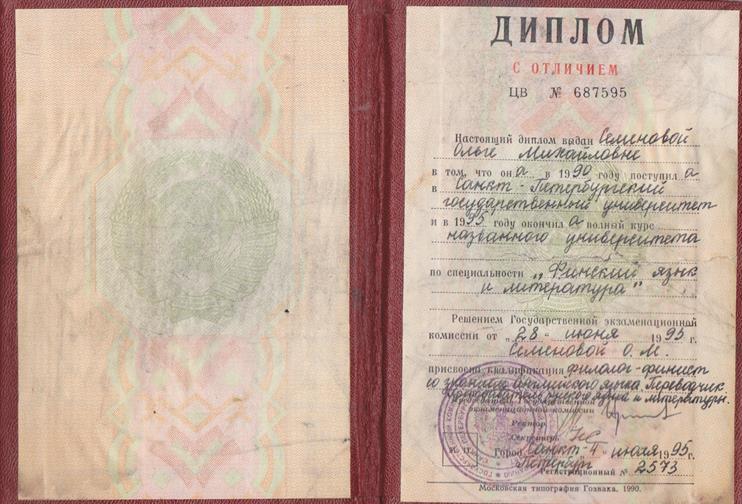 ДИПЛОМ
С ОТЛИЧИЕМ
ЦВ № 687595
Настоящий диплом выдан Семеновой
Ольге Михайловне
в том, что она в 1990 году поступила
в Санкт-Петербургский
государственный университет
и в 1995 году окончила полный курс
названного университета
по специальности „Финский язык
и литература"
Решением Государственной экзаменационной
комиссии от „28" июня 1995 г.
Семеновой О.М.
присвоена квалификация филолог-финист
со знанием английского языка. Переводчик.
Преподаватель языка и литературы.
Председатель Государственной
экзаменационной комиссии
Ректор
Секретарь
М. П. Город Санкт- „4" июля 1995 г.
Петербург
Регистрационный № 2573
Московская типография Гознака. 1990.